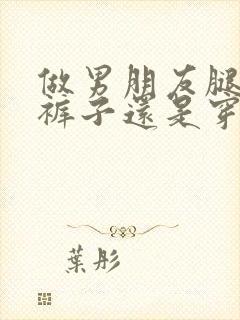 做男朋友腿
裤子還是穿
葉彤